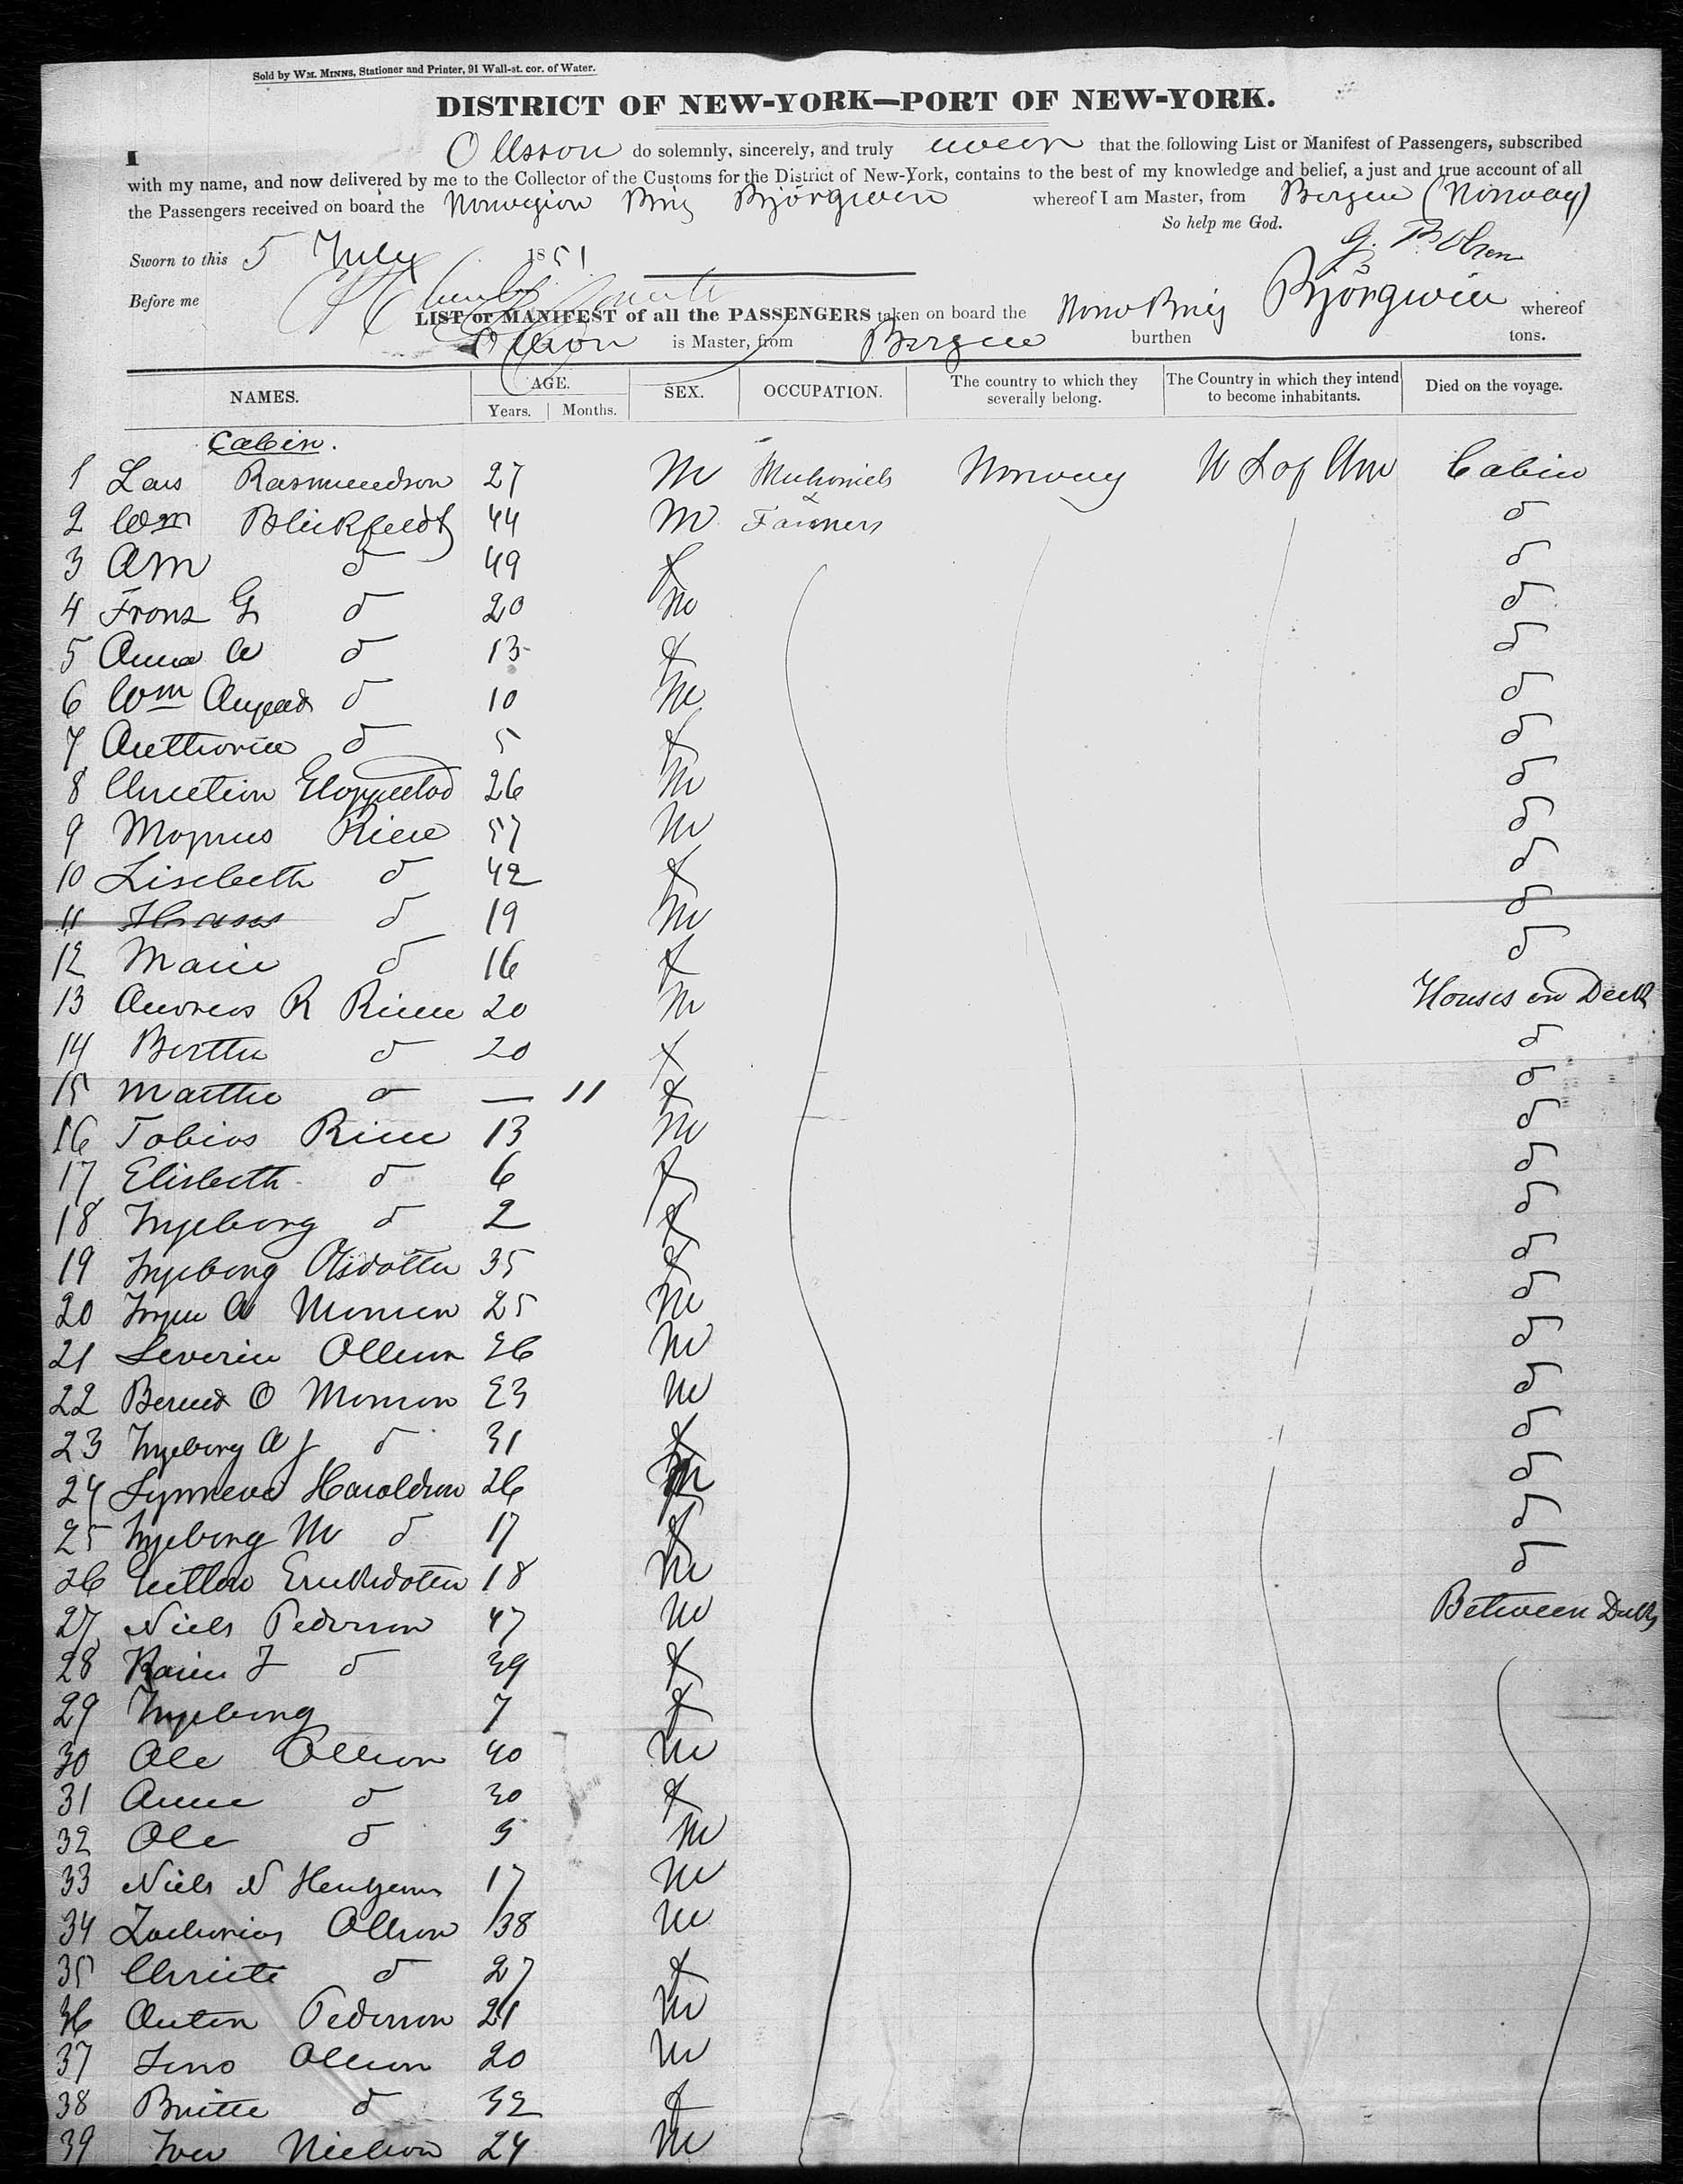 Sold by WM. MINNS, Stationer and Printer, 91 Wall-st. cor. of Water.
DISTRICT OF NEW-YORK—PORT OF NEW-YORK.
I Ollsson do solemnly, sincerely, and truly swear that the following List or Manifest of Passengers, subscribed
with my name, and now delivered by me to the Collector of the Customs for the District of New-York, contains to the best of my knowledge and belief, a just and true account of all
the Passengers received on board the Norwegian Brig Björgwin whereof I am Master, from Bergen (Norway)
So help me God.
Sworn to this 5 July 1851
G. B Olsen
Before me
LIST or MANIFEST of all the PASSENGERS taken on board the Norw Brig Björgwin whereof
Ollson is Master, from Bergen burthen tons.
NAMES. AGE. Years. Months. SEX. OCCUPATION. The country to which they severally belong. The Country in which they intend to become inhabitants. Died on the voyage.
Cabin.
1 Lars Rasmundson 27 M Mechanicks Norway U S of Am Cabin
2 Wm Blickfeldt 44 M & Farmers do
3 AM do 49 f do
4 Frans G do 20 M do
5 Anna W do 13 f do
6 Wm August do 10 M do
7 do 5 f do
8 Christian 26 M do
9 Magnus 57 M do
10 Lisebeth do 42 f do
11 Hans do 19 M do
12 Marie do 16 f do
13 Andreas R 20 M Houses on Deck
14 Berthe do 20 f do
15 Marthe do — 11 f do
16 Tobias 13 M do
17 Elisbeth do 6 f do
18 Ingeborg do 2 f do
19 Ingeborg Olsdotter 35 f do
20 A Monsen 25 M do
21 Severin Ollson 26 M do
22 Bernd O Monson 23 M do
23 Ingeborg A do 31 f do
24 Synneva Haroldson 26 do
25 Ingeborg M do 17 f do
26 Ericksdotter 18 M do
27 Niels Pederson 47 M Between Decks
28 Karen J do 39 f
29 Ingeborg 7 f
30 Ole Ollson 40 M
31 Anne do 30 f
32 Ole do 5 M
33 Niels N 17 M
34 Zacharias Ollson 38 M
35 Christe do 27 f
36 Pederson 21 M
37 Jens Ollson 20 M
38 Britte do 32 f
39 Iver Nielson 24 M